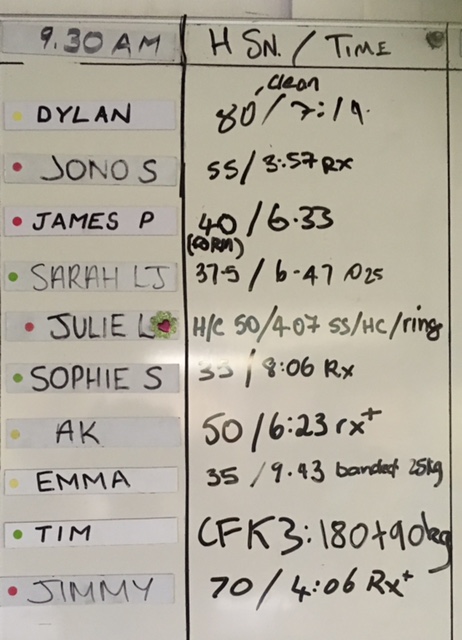 9.30 AM H SN. / TIME
clean
DYLAN 80 / 7:19
JONO S 55 / 3:57 Rx
JAMES P 40 / 6.33
(FORM)
SARAH LJ 37.5 / 6-47 @25
JULIE L H/C 50/4.07 SS/HC/rings
SOPHIE S 35 / 8:06 Rx
AK 50 / 6:23 rx+
EMMA 35 / 9.43 banded 25kg
TIM CFK3: 180+90kg
JIMMY 70 / 4:06 Rx+